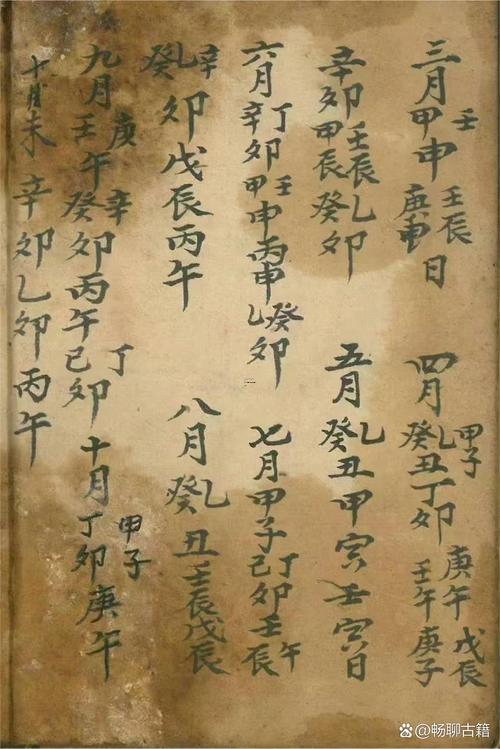 三月甲壬申壬辰庚申日
四月癸乙丑甲子丁卯庚午壬午戊辰庚子
辛卯壬辰乙甲辰癸卯
五月癸乙丑甲寅壬寅日
六月辛丁卯甲壬申丙申癸乙卯
七月甲子己丁卯壬午辰
辛乙癸卯戊辰丙午
八月癸乙丑壬辰戊辰
九月壬庚午癸辛卯丙午己丁卯
十月丁卯甲子庚午
十月未辛卯乙卯丙午
@畅聊古籍